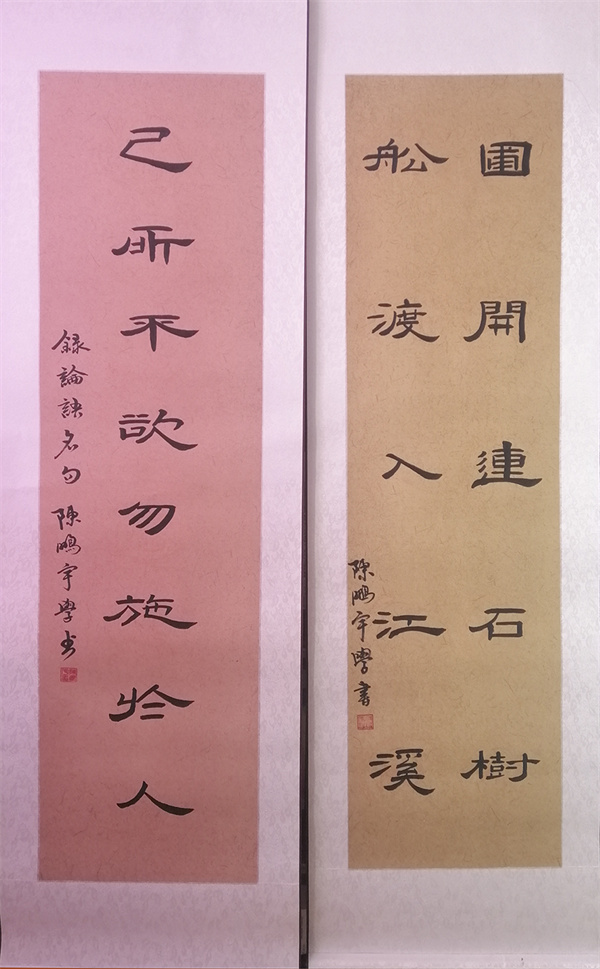 圃開連石樹
舩渡入江溪
陳鵬宇學書
己所不欲勿施於人
錄論語名句 陳鵬宇學书